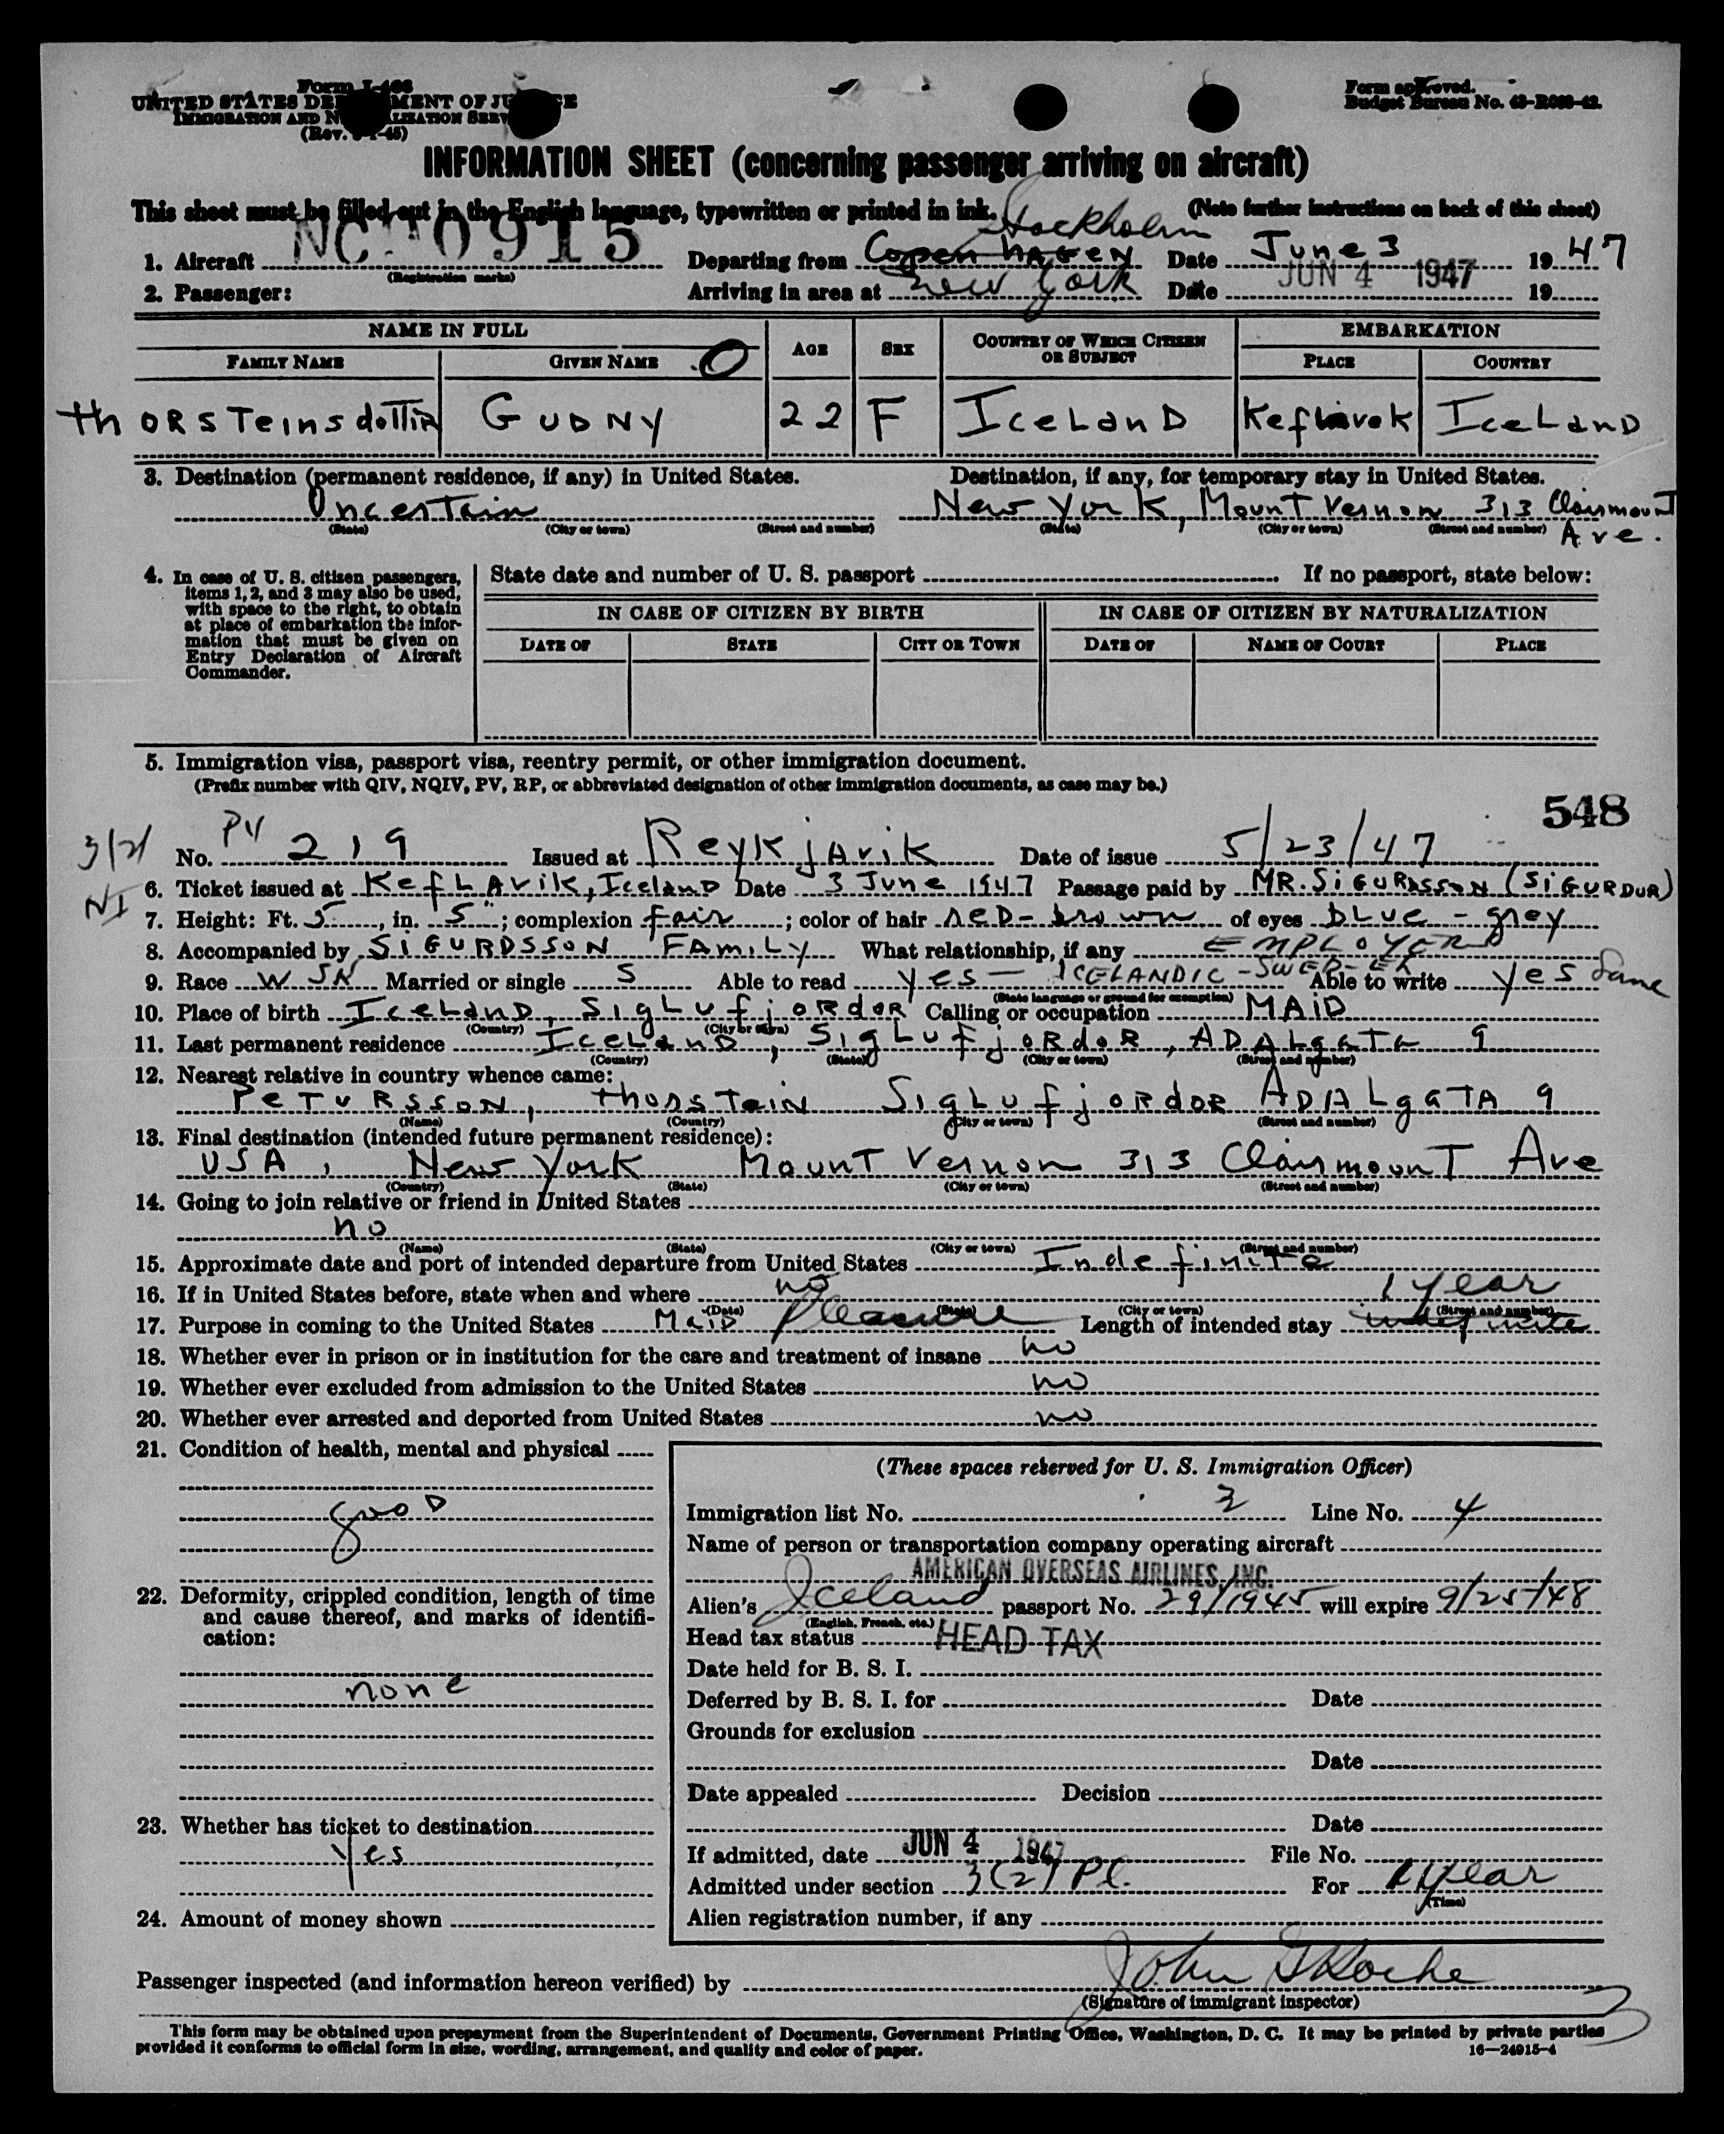 Form I-466
UNITED STATES DEPARTMENT OF JUSTICE
IMMIGRATION AND NATURALIZATION SERVICE
Form approved.
Budget Bureau No. 43-R063-42.
INFORMATION SHEET (concerning passenger arriving on aircraft)
This sheet must be filled out in the English language, typewritten or printed in ink.
(Note further instructions on back of this sheet)
Stockholm
1. Aircraft NC 0915 Departing from Copenhagen Date June 3 1947
(Registration marks)
2. Passenger: Arriving in area at New York Date JUN 4 1947 19
NAME IN FULL AGE SEX COUNTRY OF WHICH CITIZEN OR SUBJECT EMBARKATION
FAMILY NAME GIVEN NAME O PLACE COUNTRY
thORSTeinsdoTTiR GUDNY 22 F IceLanD Keflavok IceLanD
3. Destination (permanent residence, if any) in United States. Destination, if any, for temporary stay in United States.
UncerTain New York, MounT Vernon 313 ClairmounT Ave.
(State) (City or town) (Street and number) (State) (City or town) (Street and number)
4. In case of U. S. citizen passengers, items 1, 2, and 3 may also be used, with space to the right, to obtain at place of embarkation the information that must be given on Entry Declaration of Aircraft Commander.
State date and number of U. S. passport If no passport, state below:
IN CASE OF CITIZEN BY BIRTH IN CASE OF CITIZEN BY NATURALIZATION
DATE OF STATE CITY OR TOWN DATE OF NAME OF COURT PLACE
5. Immigration visa, passport visa, reentry permit, or other immigration document.
(Prefix number with QIV, NQIV, PV, RP, or abbreviated designation of other immigration documents, as case may be.)
548
3/2/ No. PV 219 Issued at Reykjavik Date of issue 5/23/47
NI
6. Ticket issued at KefLAvik, IcelanD Date 3 June 1947 Passage paid by MR. SiGURDSSON (SiGURDUR)
7. Height: Ft. 5, in. 5"; complexion fair; color of hair reD-brown of eyes bLue-grey
8. Accompanied by SIGURDSSON FAMiLy What relationship, if any EMPLOYER
9. Race W SK Married or single S Able to read yes - ICELANDIC-SWED-EN Able to write yes Same
(State language or ground for exemption)
10. Place of birth IceLanD, SigLufjordor Calling or occupation MAiD
(Country) (City or town)
11. Last permanent residence IceLanD, SigLufjORdoR, ADALgaTa 9
(Country) (State) (City or town) (Street and number)
12. Nearest relative in country whence came:
PeTURSSON, thorsTeiN SigLufjORdOR ADALgaTA 9
(Name) (Country) (City or town) (Street and number)
13. Final destination (intended future permanent residence):
USA, New York MounT Vernon 313 ClairmounT Ave
(Country) (State) (City or town) (Street and number)
14. Going to join relative or friend in United States
no
(Name) (State) (City or town) (Street and number)
15. Approximate date and port of intended departure from United States IndefiniTe
16. If in United States before, state when and where no
(Date) (State) (City or town) (Street and number)
1 year
17. Purpose in coming to the United States MaiD Pleasure Length of intended stay indefinite
18. Whether ever in prison or in institution for the care and treatment of insane no
19. Whether ever excluded from admission to the United States no
20. Whether ever arrested and deported from United States no
21. Condition of health, mental and physical
gooD
22. Deformity, crippled condition, length of time and cause thereof, and marks of identification:
none
23. Whether has ticket to destination
yes
24. Amount of money shown
(These spaces reserved for U. S. Immigration Officer)
Immigration list No. 3 Line No. 4
Name of person or transportation company operating aircraft
AMERICAN OVERSEAS AIRLINES, INC.
Alien's Iceland passport No. 29/1945 will expire 9/25/48
(English, French, etc.)
Head tax status HEAD TAX
Date held for B. S. I.
Deferred by B. S. I. for Date
Grounds for exclusion
Date
Date appealed Decision
Date
If admitted, date JUN 4 1947 File No.
Admitted under section 3(2) Pl. For 1 year
(Time)
Alien registration number, if any
Passenger inspected (and information hereon verified) by John G Roche
(Signature of immigrant inspector)
This form may be obtained upon prepayment from the Superintendent of Documents, Government Printing Office, Washington, D. C. It may be printed by private parties
provided it conforms to official form in size, wording, arrangement, and quality and color of paper.
16—24915-4